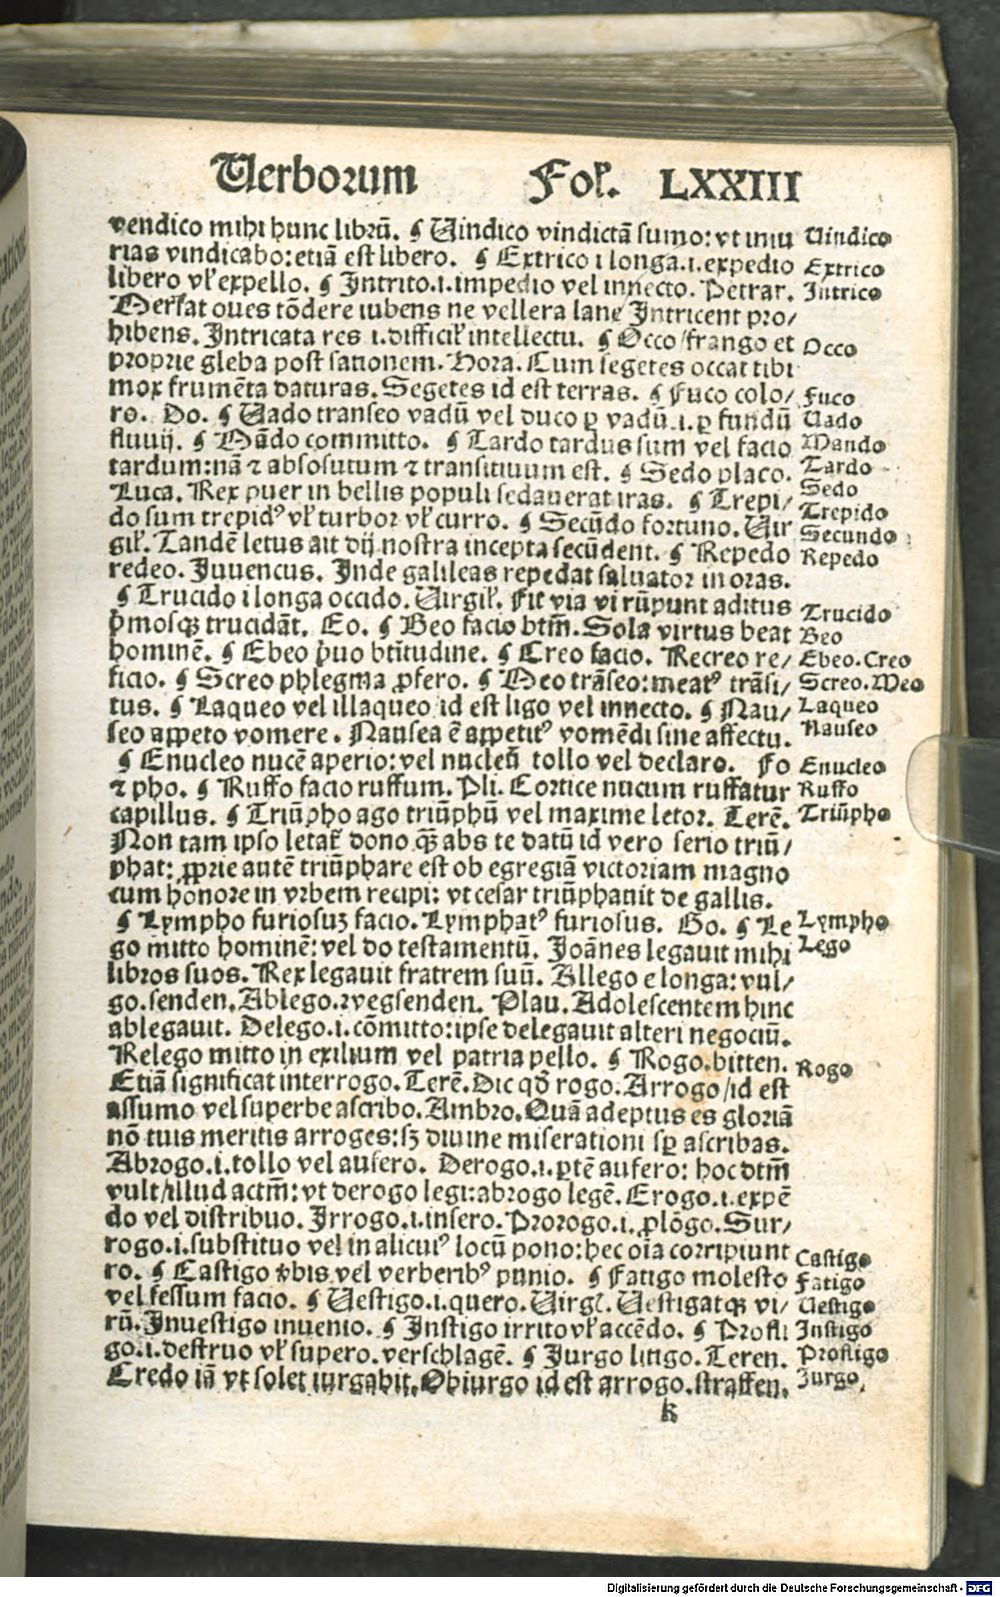 Verborum Fol. LXXIII
vendico mihi hunc librū. ¶ Uindico vindictā sumo: vt iniu Uindico
rias vindicabo: etiā est libero. ¶ Extrico i longa .i. expedio Extrico
libero vl' expello. ¶ Intrito .i. impedio vel innecto. Petrar. Intrico
Versat oues tōdere iubens ne vellera lane Intricent pro/
hibens. Intricata res .i. difficil' intellectu. ¶ Occo / frango et Occo
proprie gleba post sationem. Hora. Cum segetes occat tibi
mox frumēta daturas. Segetes id est terras. ¶ Fuco colo/ Fuco
ro. Do. ¶ Uado transeo vadū vel duco ꝑ vadū .i. ꝑ fundū Uado
fluuij. ¶ Mādo committo. ¶ Tardo tardus sum vel facio Mando
tardum: nā ⁊ absolutum ⁊ transitiuum est. ¶ Sedo placo. Tardo
Luca. Rex puer in bellis populi sedauerat iras. ¶ Trepi/ Sedo
do sum trepidꝰ vl' turbor vl' curro. ¶ Secūdo fortuno. Uir Trepido
gil'. Tandē letus ait dij nostra incepta secūdent. ¶ Repedo Secundo
redeo. Juuencus. Inde galileas repedat saluator in oras. Repedo
¶ Trucido i longa occido. Uirgil'. Fit via vi rūpunt aditus Trucido
p̄mosqꝫ trucidāt. Eo. ¶ Beo facio btm̄. Sola virtus beat Beo
hominē. ¶ Ebeo p̄uo btītudine. ¶ Creo facio. Recreo re/ Ebeo. Creo
ficio. ¶ Screo phlegma ꝓfero. ¶ Meo trāseo: meatꝰ trāsi/ Screo. Meo
tus. ¶ Laqueo vel illaqueo id est ligo vel innecto. ¶ Nau/ Laqueo
seo appeto vomere. Nausea ē appetitꝰ vomēdi sine affectu. Nauseo
¶ Enucleo nucē aperio: vel nucleū tollo vel declaro. Fo Enucleo
⁊ pho. ¶ Ruffo facio ruffum. Pli. Cortice nucum ruffatur Ruffo
capillus. ¶ Triūpho ago triūphū vel maxime letor. Terē. Triūpho
Non tam ipso letat' dono qꝫ̄ abs te datū id vero serio triū/
phat: ꝓprie autē triūphare est ob egregiā victoriam magno
cum honore in vrbem recipi: vt cesar triūphauit de gallis.
¶ Lympho furiosuꝫ facio. Lymphatꝰ furiosus. Go. ¶ Le Lympho
go mitto hominē: vel do testamentū. Joānes legauit mihi Lego
libros suos. Rex legauit fratrem suū. Allego e longa: vul/
go. senden. Ablego. wegsenden. Plau. Adolescentem hinc
ablegauit. Delego .i. cōmitto: ipse delegauit alteri negociū.
Relego mitto in exilium vel patria pello. ¶ Rogo. bitten. Rogo
Etiā significat interrogo. Terē. Dic qd̄ rogo. Arrogo / id est
assumo vel superbe ascribo. Ambro. Quā adeptus es gloriā
nō tuis meritis arroges: sꝫ diuine miserationi sꝑ ascribas.
Abrogo .i. tollo vel aufero. Derogo .i. ꝑtē aufero: hoc dtm̄
vult / illud actm̄: vt derogo legi: abrogo legē. Erogo .i. expē
do vel distribuo. Irrogo .i. insero. Prorogo .i. ꝓlōgo. Sur/
rogo .i. substituo vel in alicuiꝰ locū pono: hec oīa corripiunt
ro. ¶ Castigo v̄bis vel verberibꝰ punio. ¶ Fatigo molesto Castigo
vel fessum facio. ¶ Uestigo .i. quero. Uirgl'. Uestigatqꝫ vi/ Fatigo
rū. Inuestigo inuenio. ¶ Instigo irrito vl' accēdo. ¶ Profli Uestigo
go .i. destruo vl' supero. verschlagē. ¶ Jurgo litigo. Teren. Instigo
Credo iā vt solet iurgabit. Obiurgo id est arrogo. straffen. Profligo
Jurgo
k
Digitalisierung gefördert durch die Deutsche Forschungsgemeinschaft - DFG